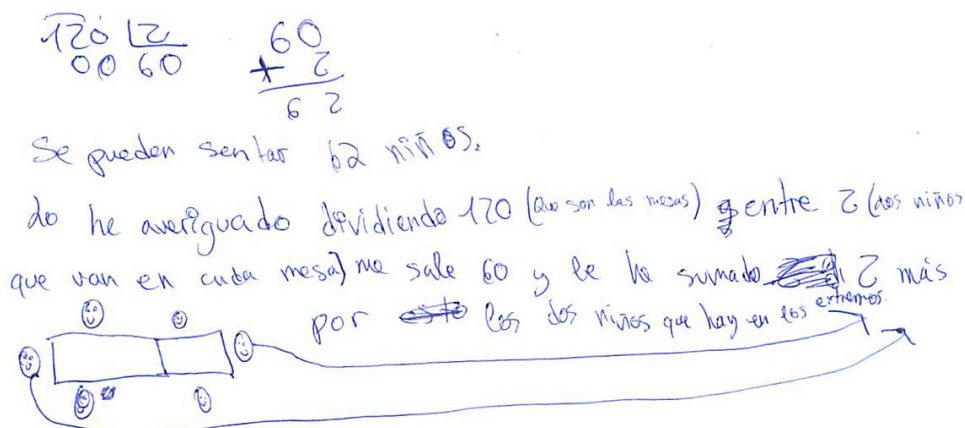 120 |2 60
00 60 + 2
62
Se pueden sentar 62 niños.
Lo he averiguado dividiendo 120 (que son las mesas) entre 2 (dos niños
que van en cada mesa) me sale 60 y le he sumado 2 más
por los dos niños que hay en los extremos.